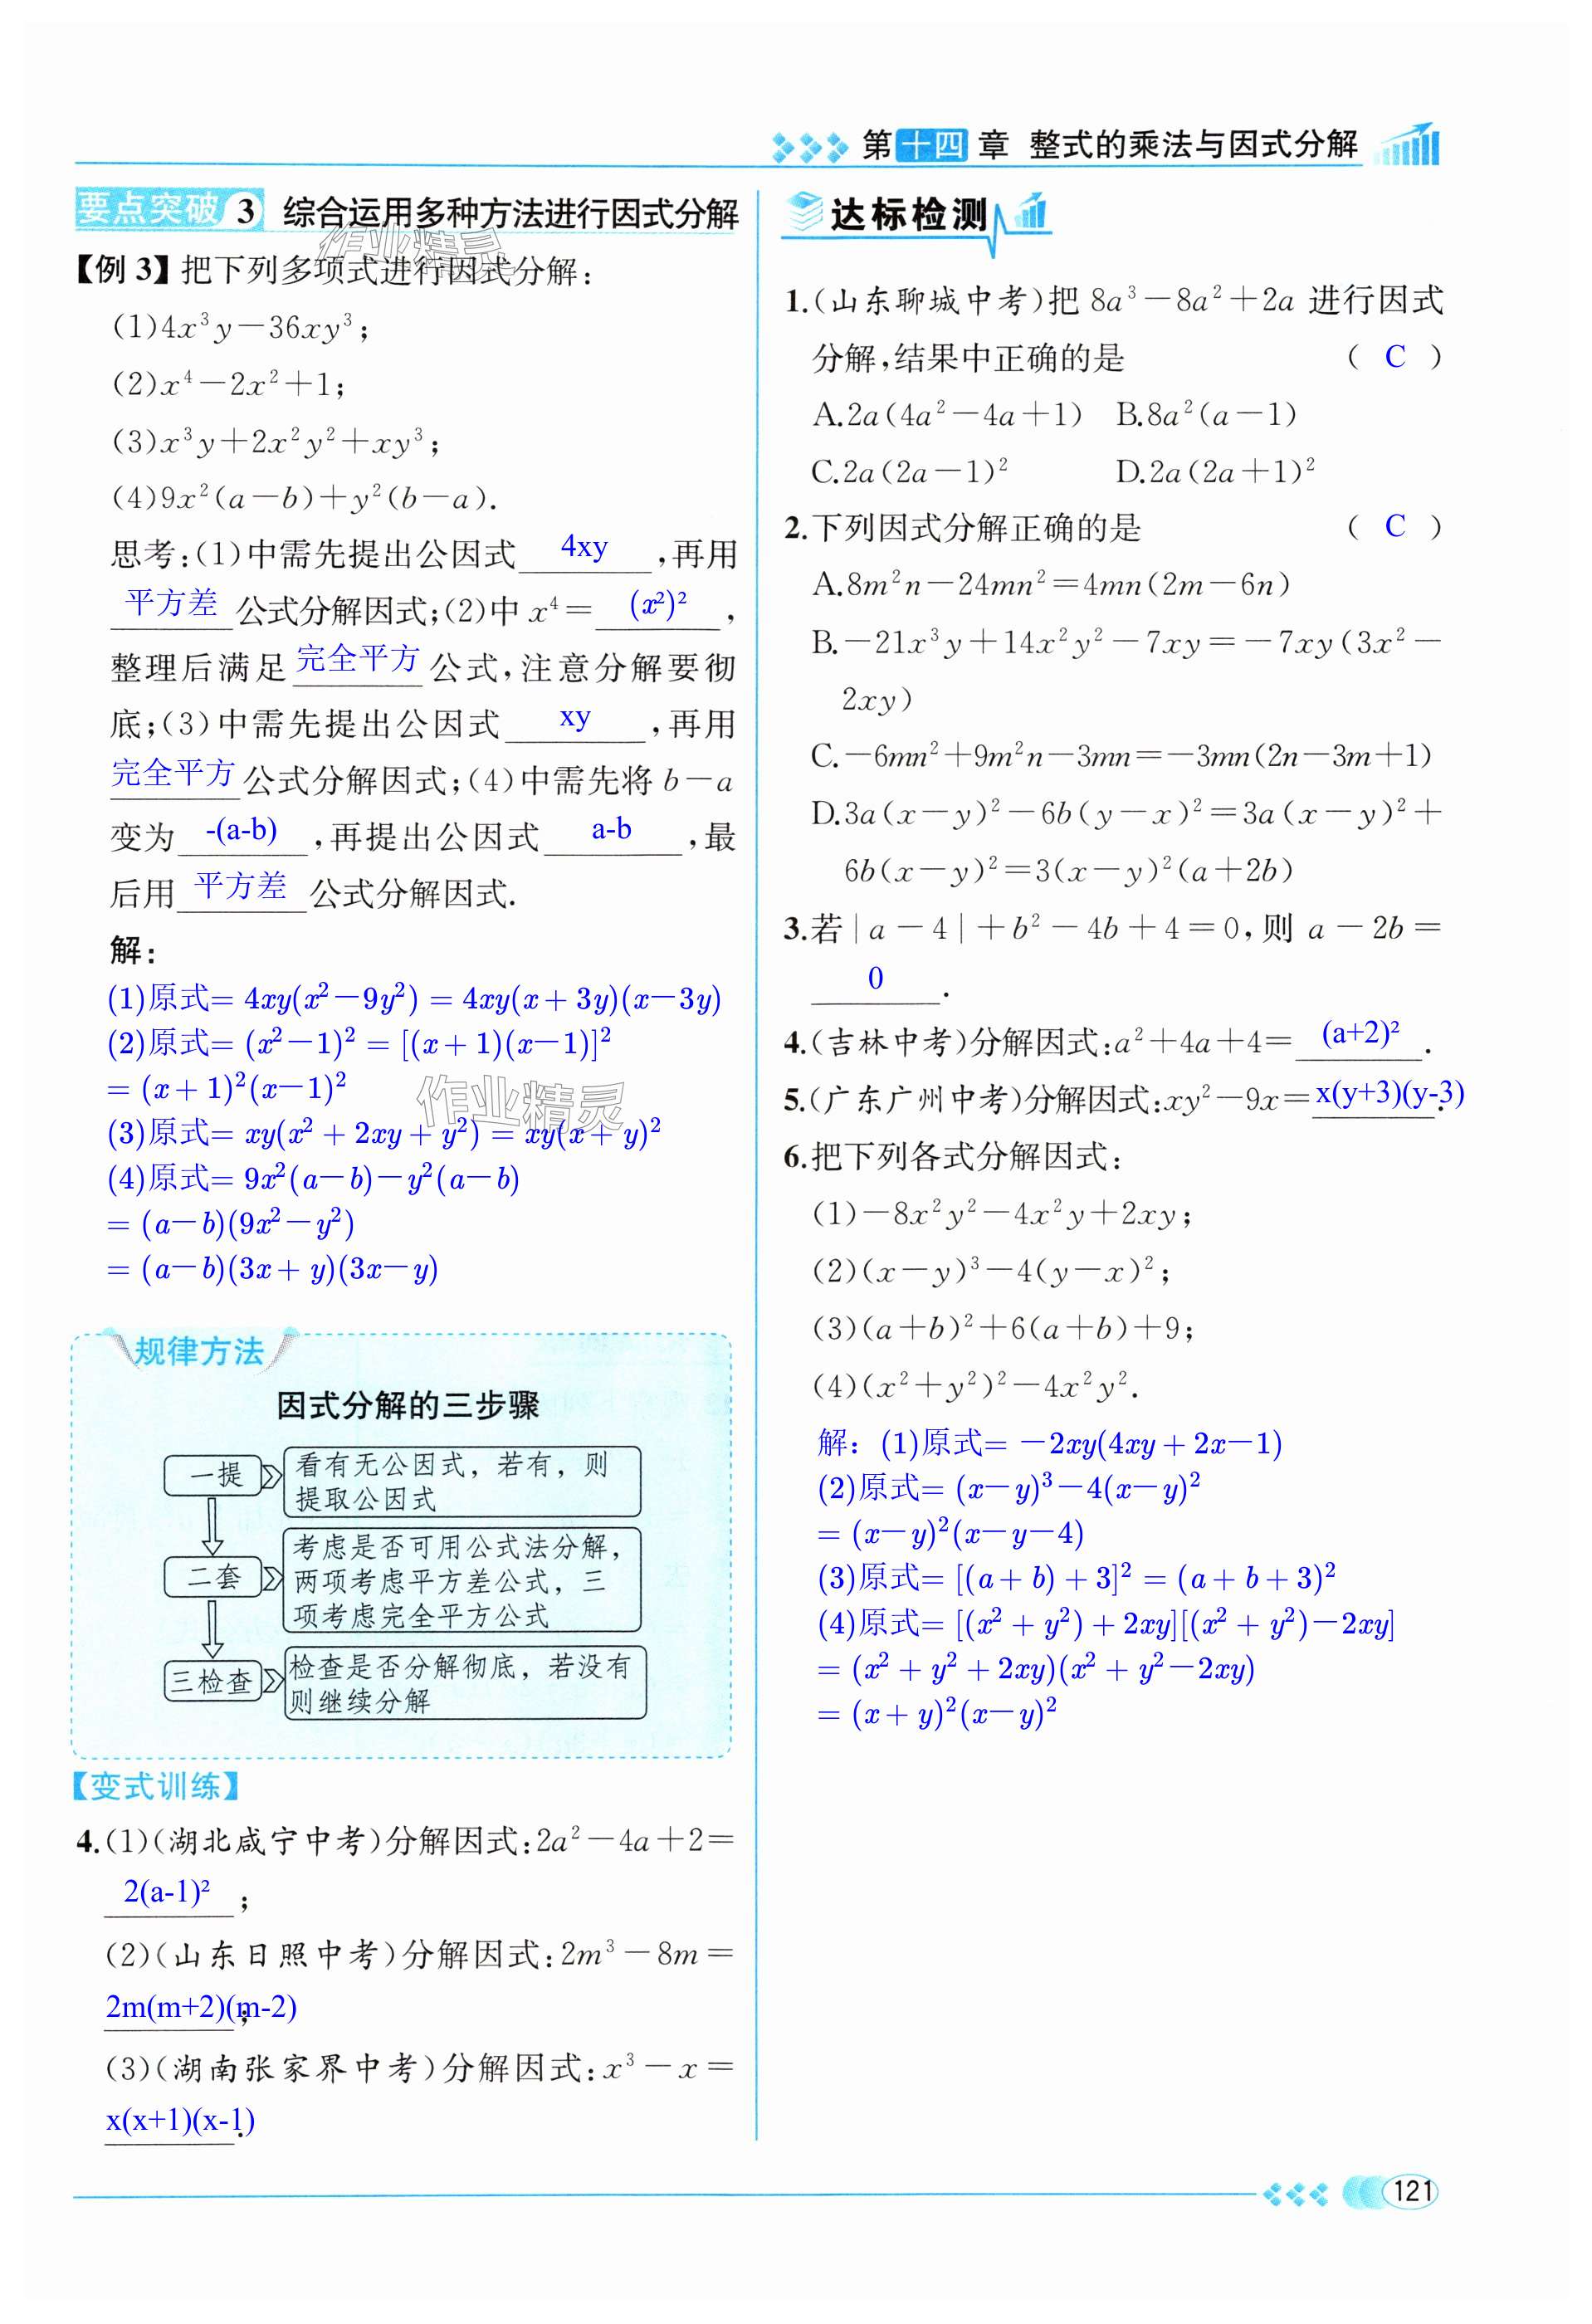 第十四章 整式的乘法与因式分解
要点突破 3 综合运用多种方法进行因式分解
【例3】把下列多项式进行因式分解:
(1)4x³y－36xy³;
(2)x⁴－2x²＋1;
(3)x³y＋2x²y²＋xy³;
(4)9x²(a－b)＋y²(b－a).
思考:(1)中需先提出公因式 4xy ,再用
平方差 公式分解因式;(2)中 x⁴＝ (x²)² ,
整理后满足 完全平方 公式,注意分解要彻
底;(3)中需先提出公因式 xy ,再用
完全平方 公式分解因式;(4)中需先将 b－a
变为 -(a-b) ,再提出公因式 a-b ,最
后用 平方差 公式分解因式.
解:
(1)原式= 4xy(x²－9y²) = 4xy(x+3y)(x－3y)
(2)原式= (x²－1)² = [(x+1)(x－1)]²
= (x+1)²(x－1)²
(3)原式= xy(x²+2xy+y²) = xy(x+y)²
(4)原式= 9x²(a－b)－y²(a－b)
= (a－b)(9x²－y²)
= (a－b)(3x+y)(3x－y)
作业精灵
作业精灵
规律方法
因式分解的三步骤
一提
看有无公因式，若有，则
提取公因式
二套
考虑是否可用公式法分解，
两项考虑平方差公式，三
项考虑完全平方公式
三检查
检查是否分解彻底，若没有
则继续分解
【变式训练】
4.(1)(湖北咸宁中考)分解因式:2a²－4a＋2＝
2(a-1)² ;
(2)(山东日照中考)分解因式:2m³－8m＝
2m(m+2)(m-2) ;
(3)(湖南张家界中考)分解因式:x³－x＝
x(x+1)(x-1) .
达标检测
1.(山东聊城中考)把 8a³－8a²＋2a 进行因式
分解,结果中正确的是 ( C )
A.2a(4a²－4a＋1) B.8a²(a－1)
C.2a(2a－1)² D.2a(2a＋1)²
2.下列因式分解正确的是 ( C )
A.8m²n－24mn²＝4mn(2m－6n)
B.－21x³y＋14x²y²－7xy＝－7xy(3x²－
2xy)
C.－6mn²＋9m²n－3mn＝－3mn(2n－3m＋1)
D.3a(x－y)²－6b(y－x)²＝3a(x－y)²＋
6b(x－y)²＝3(x－y)²(a＋2b)
3.若|a－4|＋b²－4b＋4＝0,则 a－2b＝
0 .
4.(吉林中考)分解因式:a²＋4a＋4＝ (a+2)² .
5.(广东广州中考)分解因式:xy²－9x＝ x(y+3)(y-3) .
6.把下列各式分解因式:
(1)－8x²y²－4x²y＋2xy;
(2)(x－y)³－4(y－x)²;
(3)(a＋b)²＋6(a＋b)＋9;
(4)(x²＋y²)²－4x²y².
解: (1)原式= －2xy(4xy+2x－1)
(2)原式= (x－y)³－4(x－y)²
= (x－y)²(x－y－4)
(3)原式= [(a+b)+3]² = (a+b+3)²
(4)原式= [(x²+y²)+2xy][(x²+y²)－2xy]
= (x²+y²+2xy)(x²+y²－2xy)
= (x+y)²(x－y)²
121